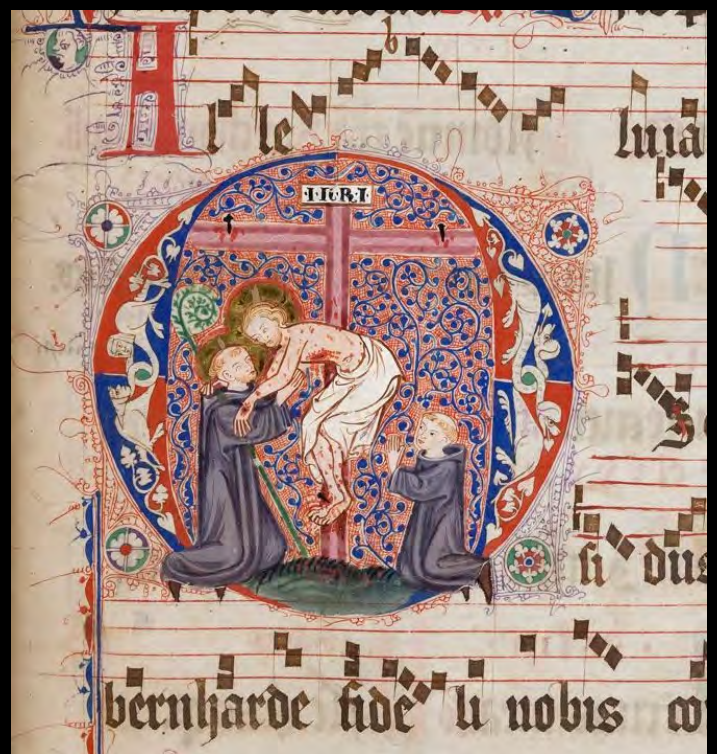 Alleluia
·I·N·R·I·
O
sidus
bernharde fideli nobis